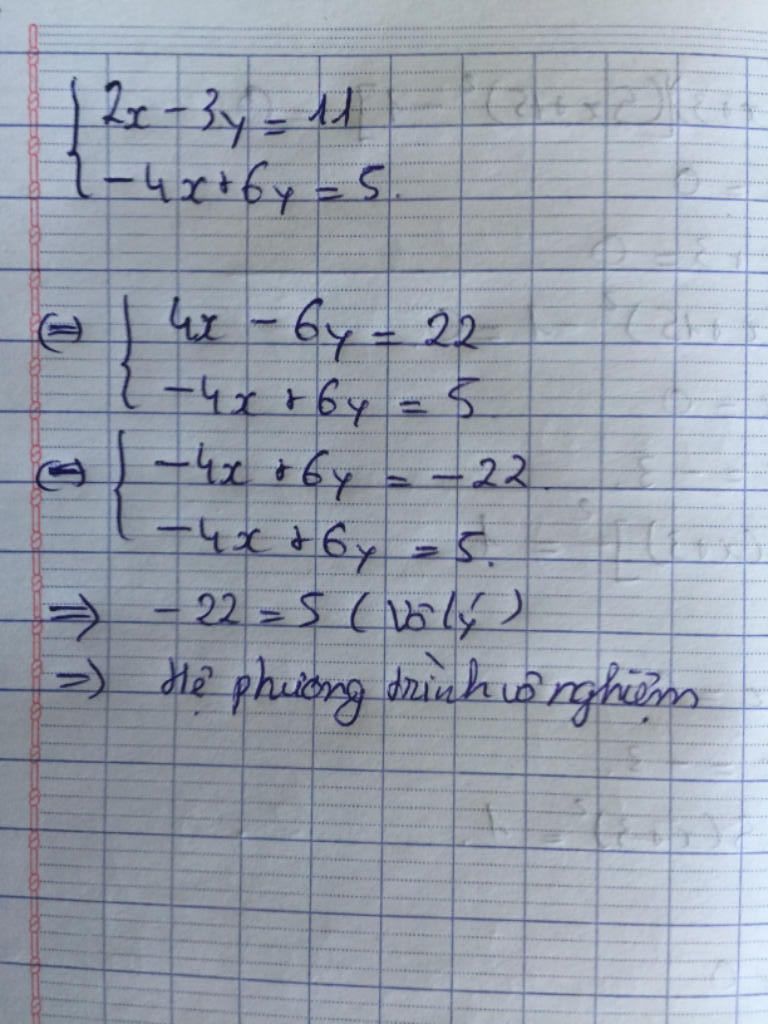 { 2x - 3y = 11
-4x + 6y = 5.
(=) { 4x - 6y = 22
-4x + 6y = 5
(=) { -4x + 6y = -22.
-4x + 6y = 5.
=> -22 = 5 (Vô lý)
=> Hệ phương trình vô nghiệm